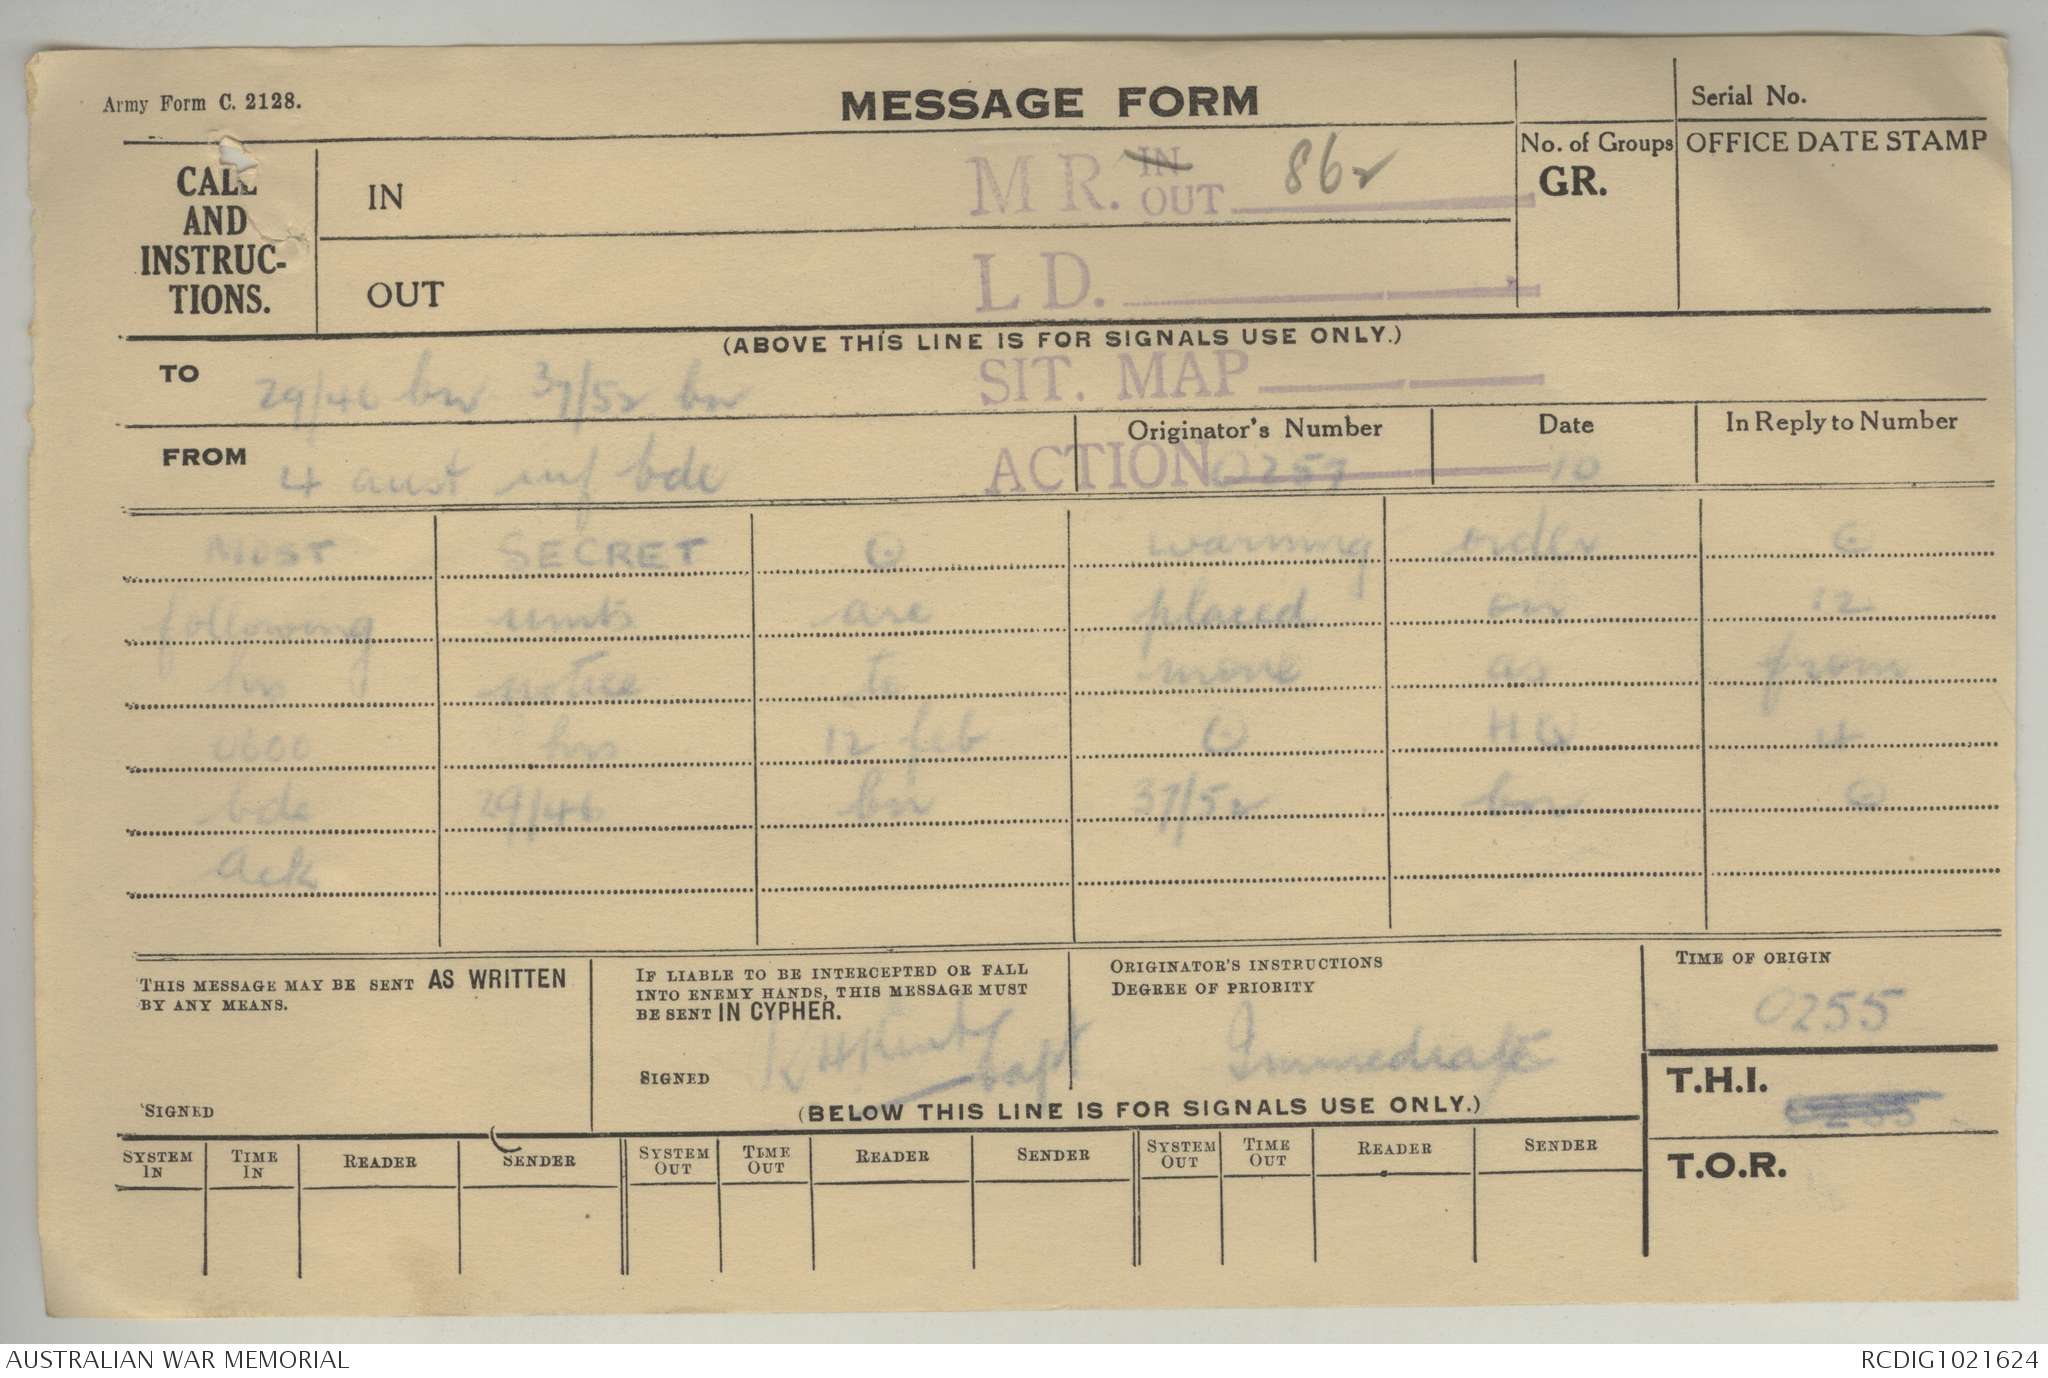 Army Form C. 2128.
MESSAGE FORM
Serial No.
CALL AND INSTRUC- TIONS.
IN
M R. IN OUT 862
No. of Groups GR.
OFFICE DATE STAMP
OUT
L D.
(ABOVE THIS LINE IS FOR SIGNALS USE ONLY.)
TO 29/46 bn 37/52 bn
SIT. MAP
FROM 4 aust inf bde
ACTION
Originator's Number O257
Date 10
In Reply to Number
MOST SECRET (.) warning order (.)
following units are placed on 12
hrs notice to move as from
0600 hrs 12 feb (.) HQ 4
bde 29/46 bn 37/52 bn (.)
Ack
THIS MESSAGE MAY BE SENT AS WRITTEN BY ANY MEANS.
SIGNED
IF LIABLE TO BE INTERCEPTED OR FALL INTO ENEMY HANDS, THIS MESSAGE MUST BE SENT IN CYPHER.
SIGNED Capt
ORIGINATOR'S INSTRUCTIONS DEGREE OF PRIORITY
Immediate
TIME OF ORIGIN
0255
T.H.I.
T.O.R.
(BELOW THIS LINE IS FOR SIGNALS USE ONLY.)
SYSTEM IN TIME IN READER SENDER SYSTEM OUT TIME OUT READER SENDER SYSTEM OUT TIME OUT READER SENDER
AUSTRALIAN WAR MEMORIAL
RCDIG1021624